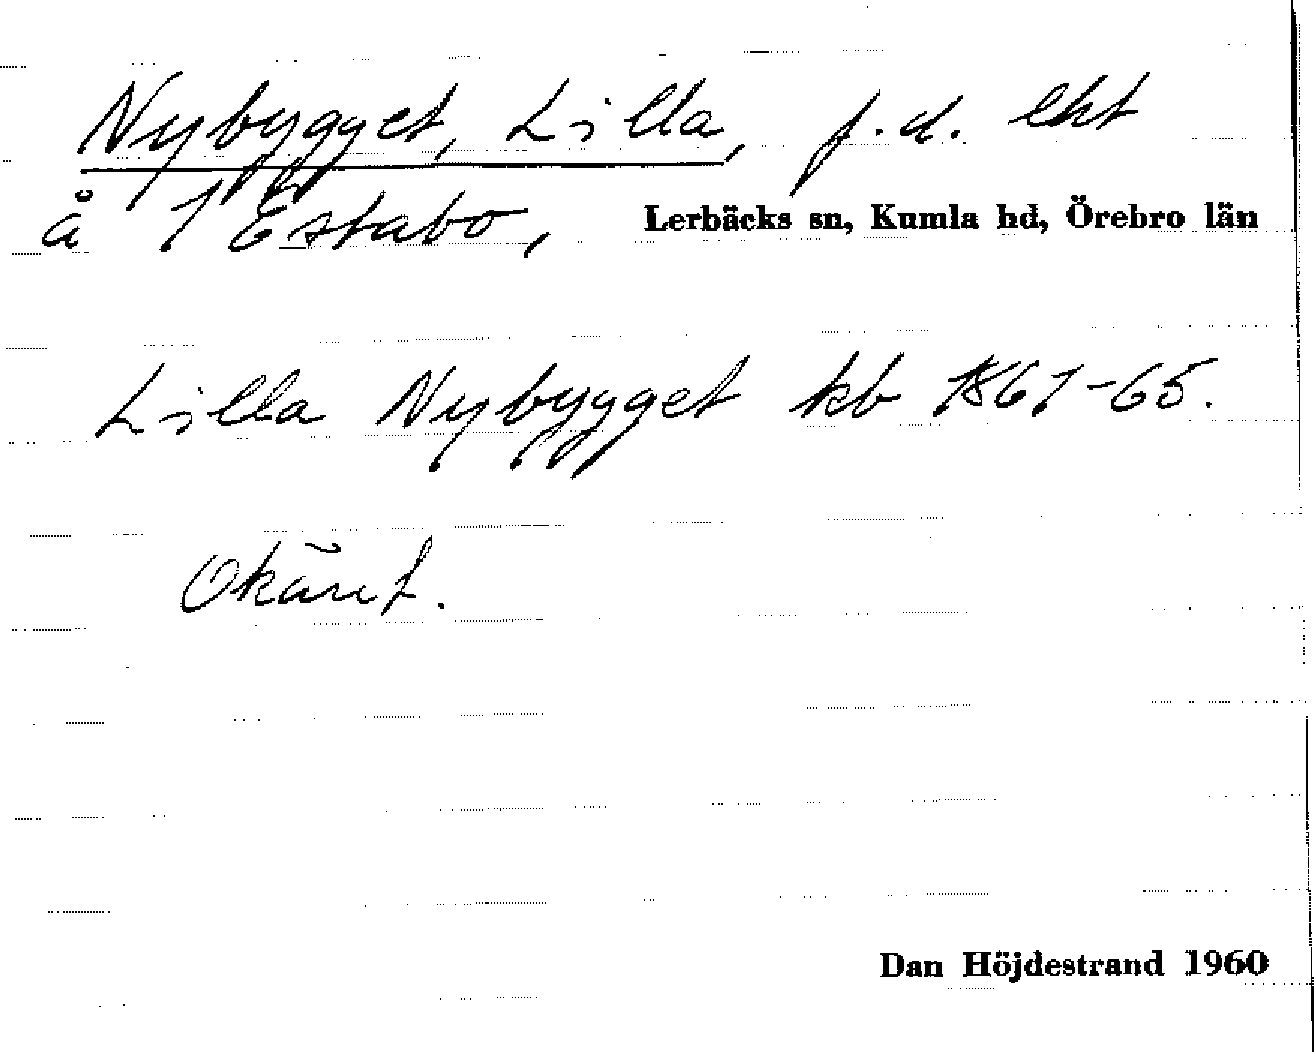 Nybygget, Lilla, f.d. lht
å 1 Estabo, Lerbäcks sn, Kumla hd, Örebro län
Lilla Nybygget kb 1861-65.
Okänt.
Dan Höjdestrand 1960